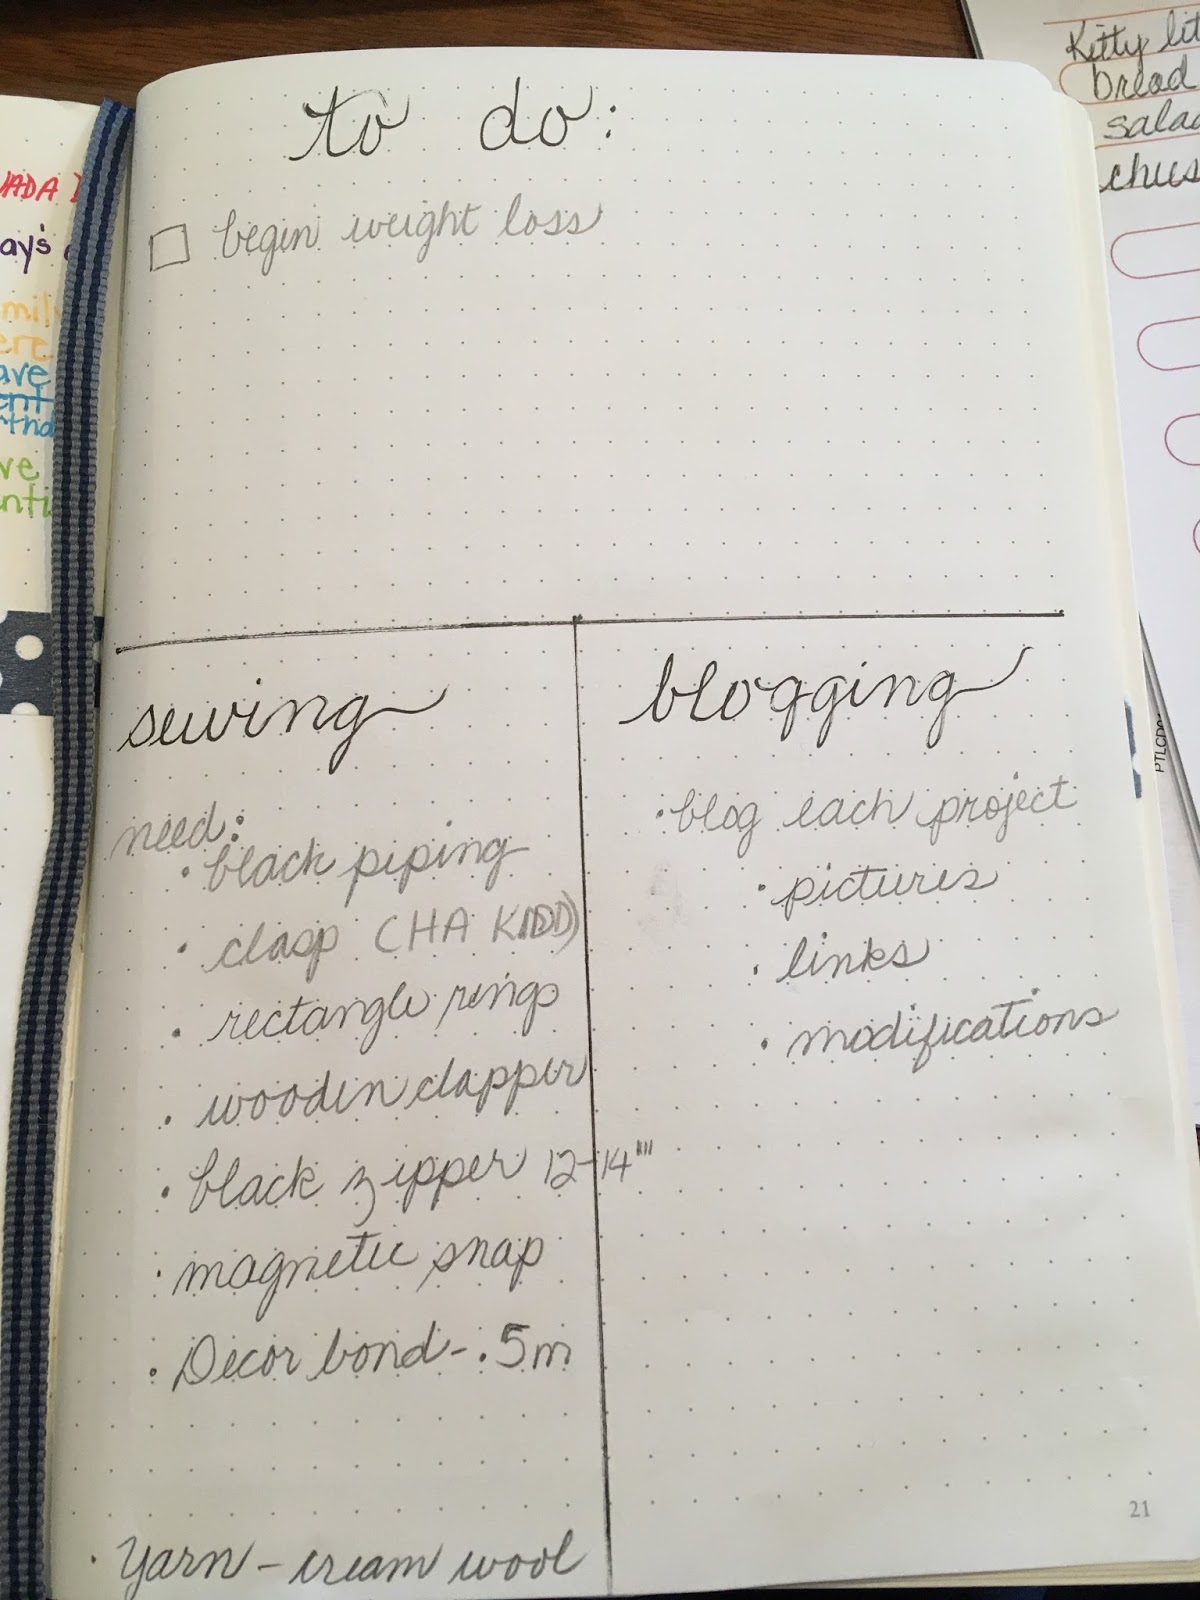 to do:
begin weight loss
sewing
need:
black piping
clasp (HA KIDD)
rectangle rings
wooden clapper
black zipper 12-14""
magnetic snap
Decor bond - .5m
Yarn - cream wool
blogging
blog each project
pictures
links
modifications
21
Kitty
bread